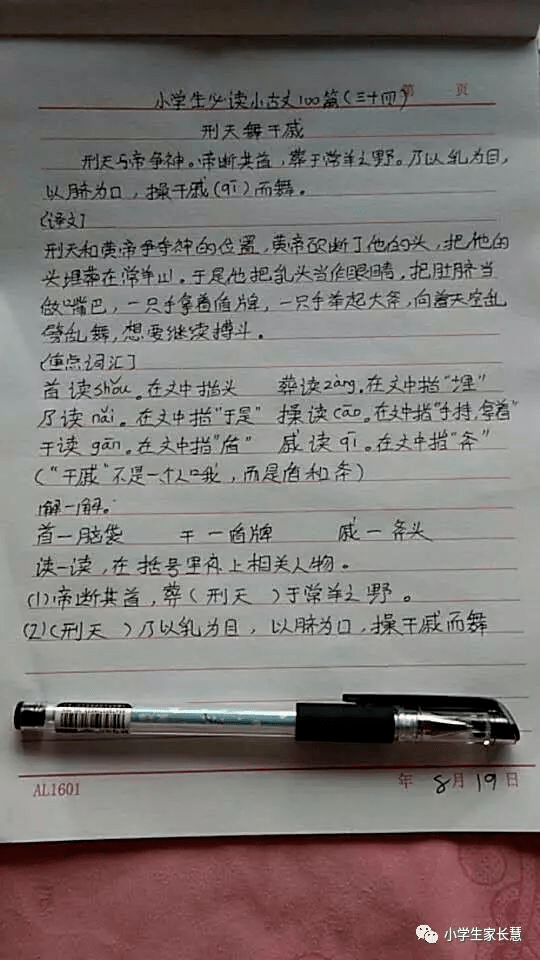 第 页
小学生必读小古文100篇(三十四)
刑天舞干戚
刑天与帝争神。帝断其首,葬于常羊之野。乃以乳为目,
以脐为口,操干戚(qī)而舞。
[译文]
刑天和黄帝争夺神的位置,黄帝砍断了他的头,把他的
头埋葬在常羊山。于是他把乳头当作眼睛,把肚脐当
做嘴巴,一只手拿着盾牌,一只手举起大斧,向着天空乱
劈乱舞,想要继续搏斗。
[重点词汇]
首读shǒu。在文中指头 葬读zàng。在文中指"埋"
乃读nǎi。在文中指"于是" 操读cāo。在文中指"手持,拿着"
干读gān。在文中指"盾" 戚读qī。在文中指"斧"
("干戚"不是一个人哦,而是盾和斧)
解一解。
首一脑袋 干一盾牌 戚一斧头
读一读,在括号里补上相关人物。
(1)帝断其首,葬(刑天 )于常羊之野。
(2)(刑天 )乃以乳为目,以脐为口,操干戚而舞
AL1601
年 8月19日
小学生家长慧